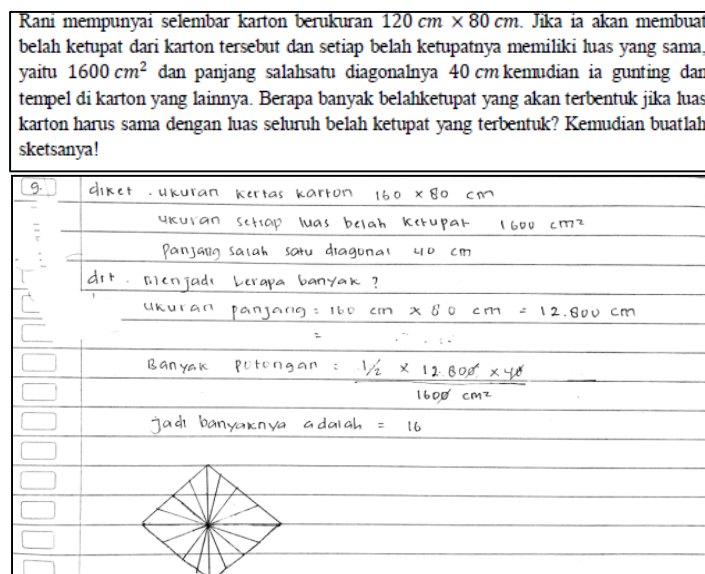 Rani mempunyai selembar karton berukuran 120 cm × 80 cm. Jika ia akan membuat
belah ketupat dari karton tersebut dan setiap belah ketupatnya memiliki luas yang sama,
yaitu 1600 cm² dan panjang salahsatu diagonalnya 40 cm kemudian ia gunting dan
tempel di karton yang lainnya. Berapa banyak belahketupat yang akan terbentuk jika luas
karton harus sama dengan luas seluruh belah ketupat yang terbentuk? Kemudian buatlah
sketsanya!
9. diket . ukuran kertas karton 160 × 80 cm
ukuran setiap luas belah ketupat 1600 cm²
Panjang salah satu diagonal 40 cm
dit . Menjadi berapa banyak ?
ukuran panjang = 160 cm × 80 cm = 12.800 cm
=
Banyak Potongan = 1/2 × 12.800 × 40
1600 cm²
jadi banyaknya adalah = 16